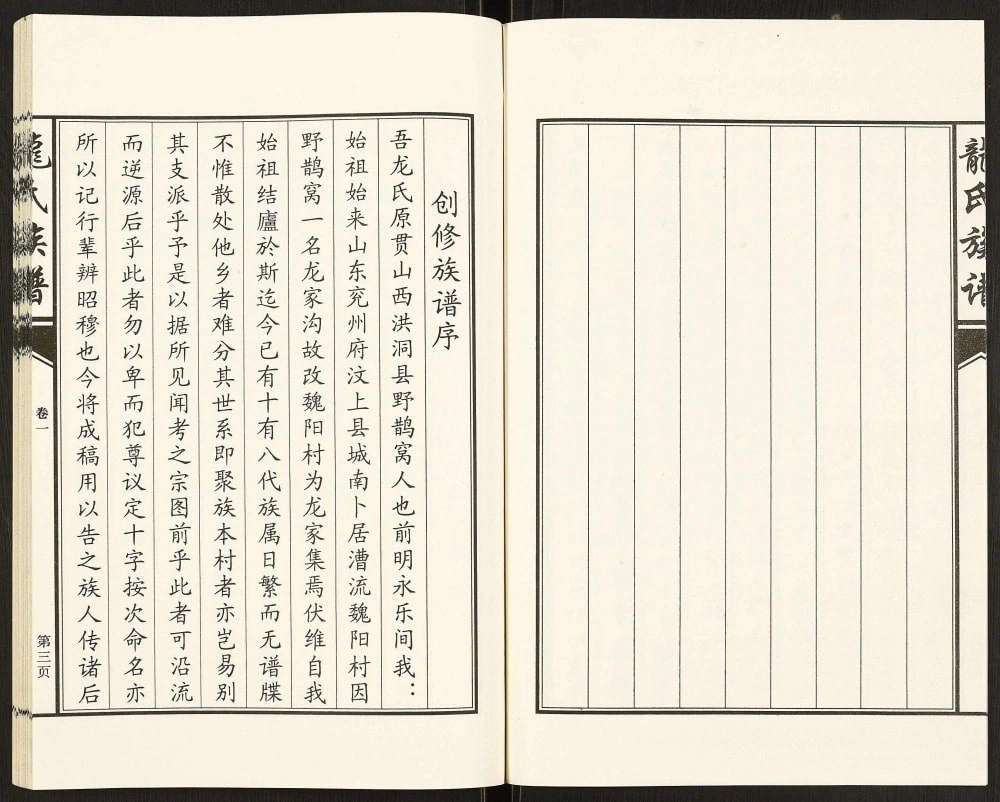 龍氏族谱
创修族谱序
吾龙氏原贯山西洪洞县野鹊窝人也前明永乐间我：
始祖始来山东兖州府汶上县城南卜居漕流魏阳村因
野鹊窝一名龙家沟故改魏阳村为龙家集焉伏维自我
始祖结廬於斯迄今已有十有八代族属日繁而无谱牒
不惟散处他乡者难分其世系即聚族本村者亦岂易别
其支派乎予是以据所见闻考之宗图前乎此者可沿流
而逆源后乎此者勿以卑而犯尊议定十字按次命名亦
所以记行辈辨昭穆也今将成稿用以告之族人传诸后
龍氏族谱
卷一
第三页